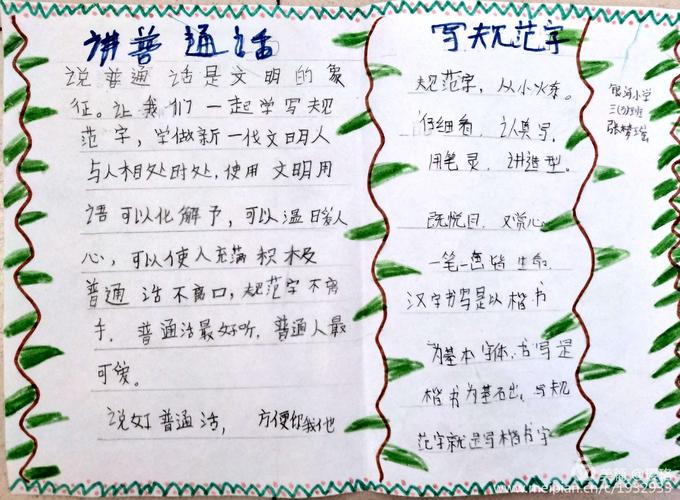 讲普通话
说普通话是文明的象
征。让我们一起学写规
范字，学做新一代文明人
与人相处时处，使用文明用
语可以化解予，可以温暖人
心，可以使人充满积极
普通活不离口，规范字不离
手．普通活最好听，普通人最
可爱。
说好普通活，方便你我他
写规范字
规范字，从小炼。
仔细看，认真写，
用笔灵，讲造型。
既悦目，又赏心。
一笔一画皆生命．
汉字书写是以楷书
为基本字体．书写是
楷书为基石出，写规
范字就是写楷书字
银河小学
三(3)班
美篇
www.meipian.cn/c/1952933